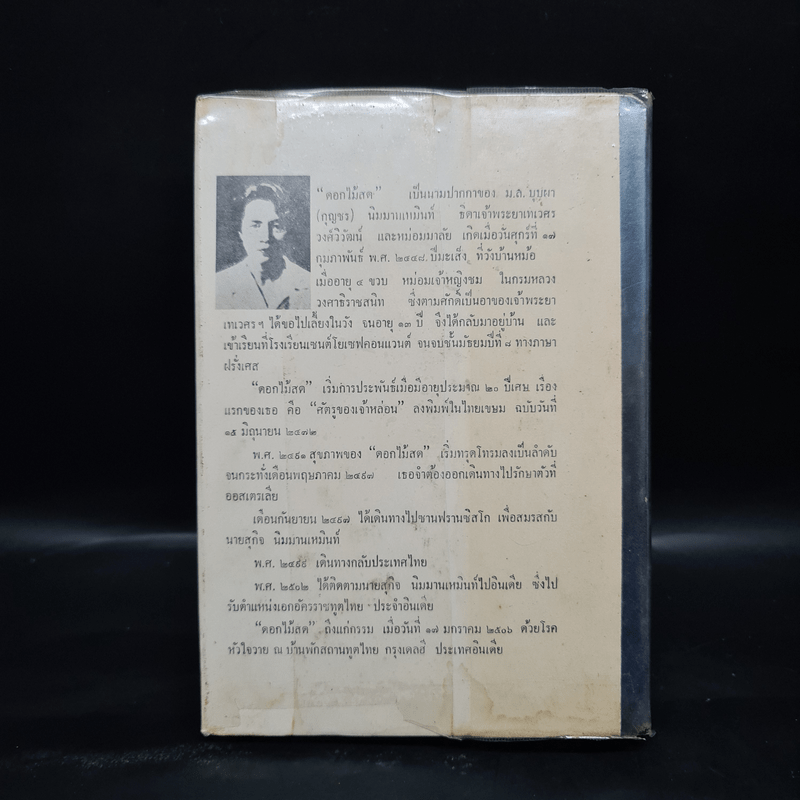 “ดอกไม้สด” เป็นนามปากกาของ ม.ล. บุบผา
(กุญชร) นิมมานเหมินท์ ธิดาเจ้าพระยาเทเวศร
วงศ์วิวัฒน์ และหม่อมมาลัย เกิดเมื่อวันศุกร์ที่ ๑๗
กุมภาพันธ์ พ.ศ. ๒๔๔๘. ปีมะเส็ง ที่วังบ้านหม้อ
เมื่ออายุ ๔ ขวบ หม่อมเจ้าหญิงชม ในกรมหลวง
วงศาธิราชสนิท ซึ่งตามศักดิ์เป็นอาของเจ้าพระยา
เทเวศร ฯ ได้ขอไปเลี้ยงในวัง จนอายุ ๑๓ ปี จึงได้กลับมาอยู่บ้าน และ
เข้าเรียนที่โรงเรียนเซนต์โยเซฟคอนแวนต์ จนจบชั้นมัธยมปีที่ ๘ ทางภาษา
ฝรั่งเศส
“ดอกไม้สด” เริ่มการประพันธ์เมื่อมีอายุประมาณ ๒๐ ปีเศษ เรื่อง
แรกของเธอ คือ “ศัตรูของเจ้าหล่อน” ลงพิมพ์ในไทยเขษม ฉบับวันที่
๑๕ มิถุนายน ๒๔๗๒
พ.ศ. ๒๔๙๑ สุขภาพของ “ดอกไม้สด” เริ่มทรุดโทรมลงเป็นลำดับ
จนกระทั่งเดือนพฤษภาคม ๒๔๙๗ เธอจำต้องออกเดินทางไปรักษาตัวที่
ออสเตรเลีย
เดือนกันยายน ๒๔๙๗ ได้เดินทางไปซานฟรานซิสโก เพื่อสมรสกับ
นายสุกิจ นิมมานเหมินท์
พ.ศ. ๒๔๙๙ เดินทางกลับประเทศไทย
พ.ศ. ๒๕๐๒ ได้ติดตามนายสุกิจ นิมมานเหมินท์ไปอินเดีย ซึ่งไป
รับตำแหน่งเอกอัครราชทูตไทย ประจำอินเดีย
“ดอกไม้สด” ถึงแก่กรรม เมื่อวันที่ ๑๗ มกราคม ๒๕๐๖ ด้วยโรค
หัวใจวาย ณ บ้านพักสถานทูตไทย กรุงเดลฮี ประเทศอินเดีย